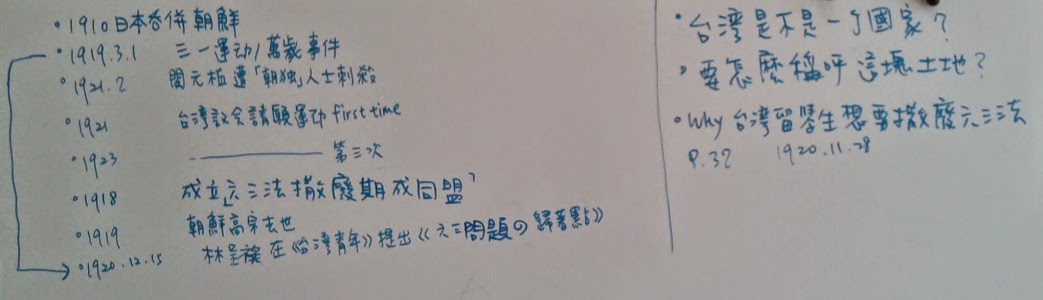 •1910日本吞併朝鮮
•1919.3.1 三一運动/萬歲事件
•1921.2 閔元植遭「朝独」人士刺殺
•1921 台湾議会請願運动 first time
•1923 ———— 第三次
•1918 成立「六三法撤廢期成同盟」
•1919 朝鮮高宗去世
•1920.12.15 林呈祿在《台湾青年》提出《六三問題の歸著點》
•台湾是不是一个國家?
•要怎麼稱呼這塊土地?
•Why 台湾留學生想要撤廢六三法
P.32 1920.11.28